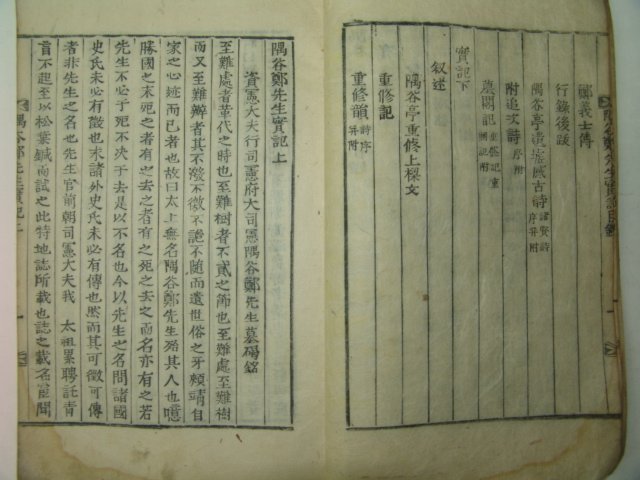 鄭義士傳
行錄後跋
隅谷亭遺墟感古詩 諸賢詩序并附
附追次詩 序附
墓閣記 重修記附
實記下
叙述
隅谷亭重修上樑文
重修記
重修韻 詩序并附
隅谷鄭先生實記上
資憲大夫行司憲府大司憲隅谷鄭先生墓碣銘
至難處者革代之時也至難樹者不貳之節也至難處至難樹
而又至難辨者其不潑不微不詭不隨而遺世俗之牙頰靖自
家之心迹而已者也故曰太上無名隅谷鄭先生殆其人也噫
勝國之末死之者有之去之者有之死之去之而名亦有之若
先生不必于死不決于去是以不名也今以先生之名問諸國
史氏未必有徵也求諸外史氏未必有傳也然而其可徵可傳
者非先生之名也先生官前朝司憲大夫我 太祖累聘託青
盲不起至以松葉鍼而試之此特地誌所載也誌之載名宦聞